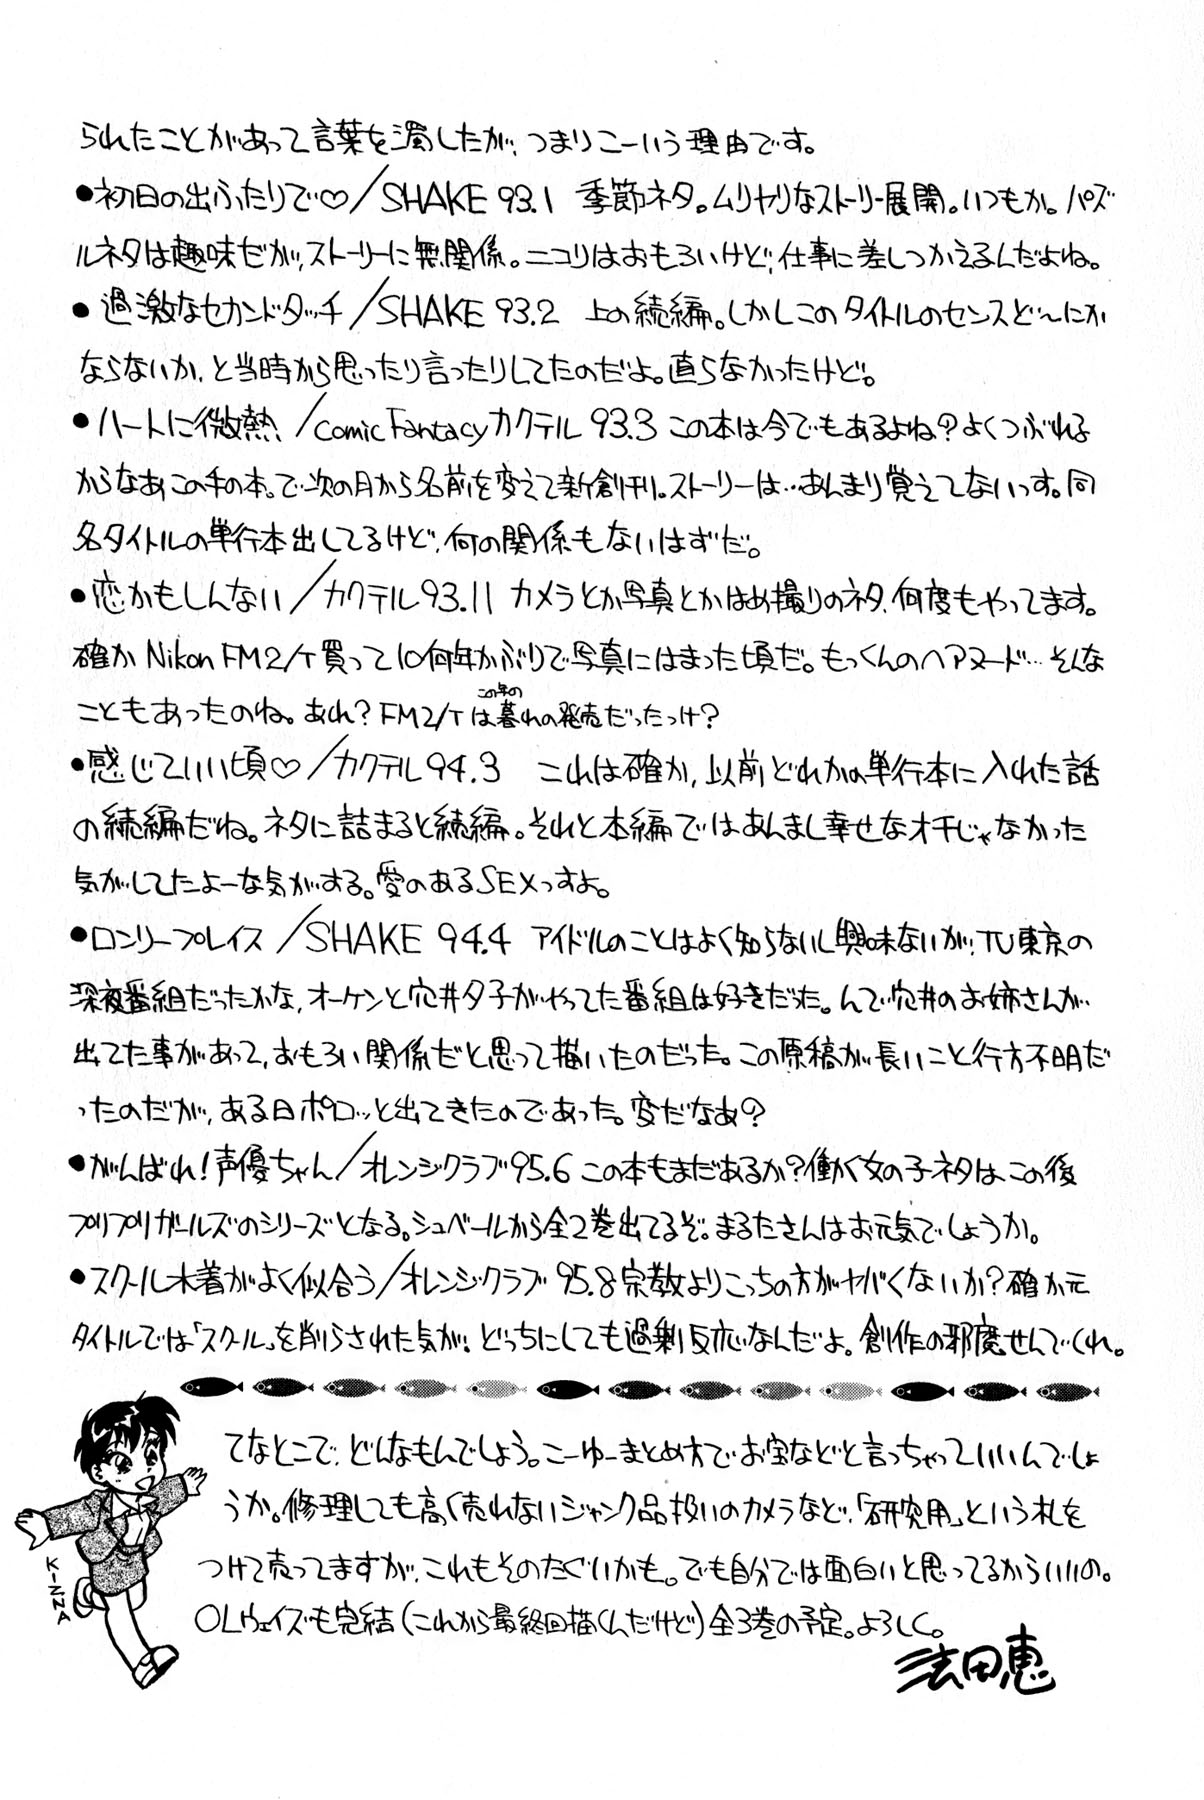 られたことがあって言葉を濁したが、つまりこーいう理由です。
●初日の出ふたりで♡／SHAKE 93.1 季節ネタ。ムリヤリなストーリー展開。いつもか。パズ
ルネタは趣味だが、ストーリーに無関係。ニコリはおもろいけど、仕事に差しつかえるんだよね。
●過激なセカンドタッチ／SHAKE 93.2 上の続編。しかしこのタイトルのセンスど〜にか
ならないか、と当時から思ったり言ったりしてたのだよ。直らなかったけど。
●ハートに微熱／Comic Fantasyカクテル 93.3 この本は今でもあるよね？よくつぶれる
からなあこの手の本。で次の月から名前を変えて新創刊。ストーリーは…あんまり覚えてないっす。同
名タイトルの単行本出してるけど、何の関係もないはずだ。
●恋かもしんない／カクテル93.11 カメラとか写真とかはめ撮りのネタ、何度もやってます。
確か Nikon FM2/T買って10何年かぶりで写真にはまった頃だ。もっくんのヘアヌード…そんな
こともあったのね。あれ？FM2/Tはこの年の暮れの発売だったっけ？
●感じていい頃♡／カクテル94.3 これは確か、以前どれかの単行本に入れた話
の続編だね。ネタに詰まると続編。それと本編ではあんまし幸せなオチじゃなかった
気がしてたよーな気がする。愛のあるSEXっすよ。
●ロンリープレイス／SHAKE 94.4 アイドルのことはよく知らないし興味ないが、TV東京の
深夜番組だったかな、オーケンと穴井夕子がやってた番組は好きだった。んで穴井のお姉さんが
出てた事があって、おもろい関係だと思って描いたのだった。この原稿が長いこと行方不明だ
ったのだが、ある日ポロッと出てきたのであった。変だなあ？
●がんばれ！声優ちゃん／オレンジクラブ95.6 この本もまだあるか？働く女の子ネタは、この後
プリプリガールズのシリーズとなる。シュベールから全2巻出てるぞ。まるたさんはお元気でしょうか。
●スクール水着がよく似合う／オレンジクラブ 95.8 宗教よりこっちの方がヤバくないか？確か元
タイトルでは「スクール」を削らされた気が！どっちにしても過剰反応なんだよ。創作の邪魔せんでくれ。
てなとこで、どんなもんでしょう。こーゆーまとめ方でお宝などと言っちゃっていいんでしょ
うか。修理しても高く売れないジャンク品扱いのカメラなど、「研究用」という札を
つけて売ってますが、これもそのたぐいかも。でも自分では面白いと思ってるからいいの。
OLウェイズも完結（これから最終回描くんだけど）全3巻の予定。よろしく。
KIZNA
法田恵